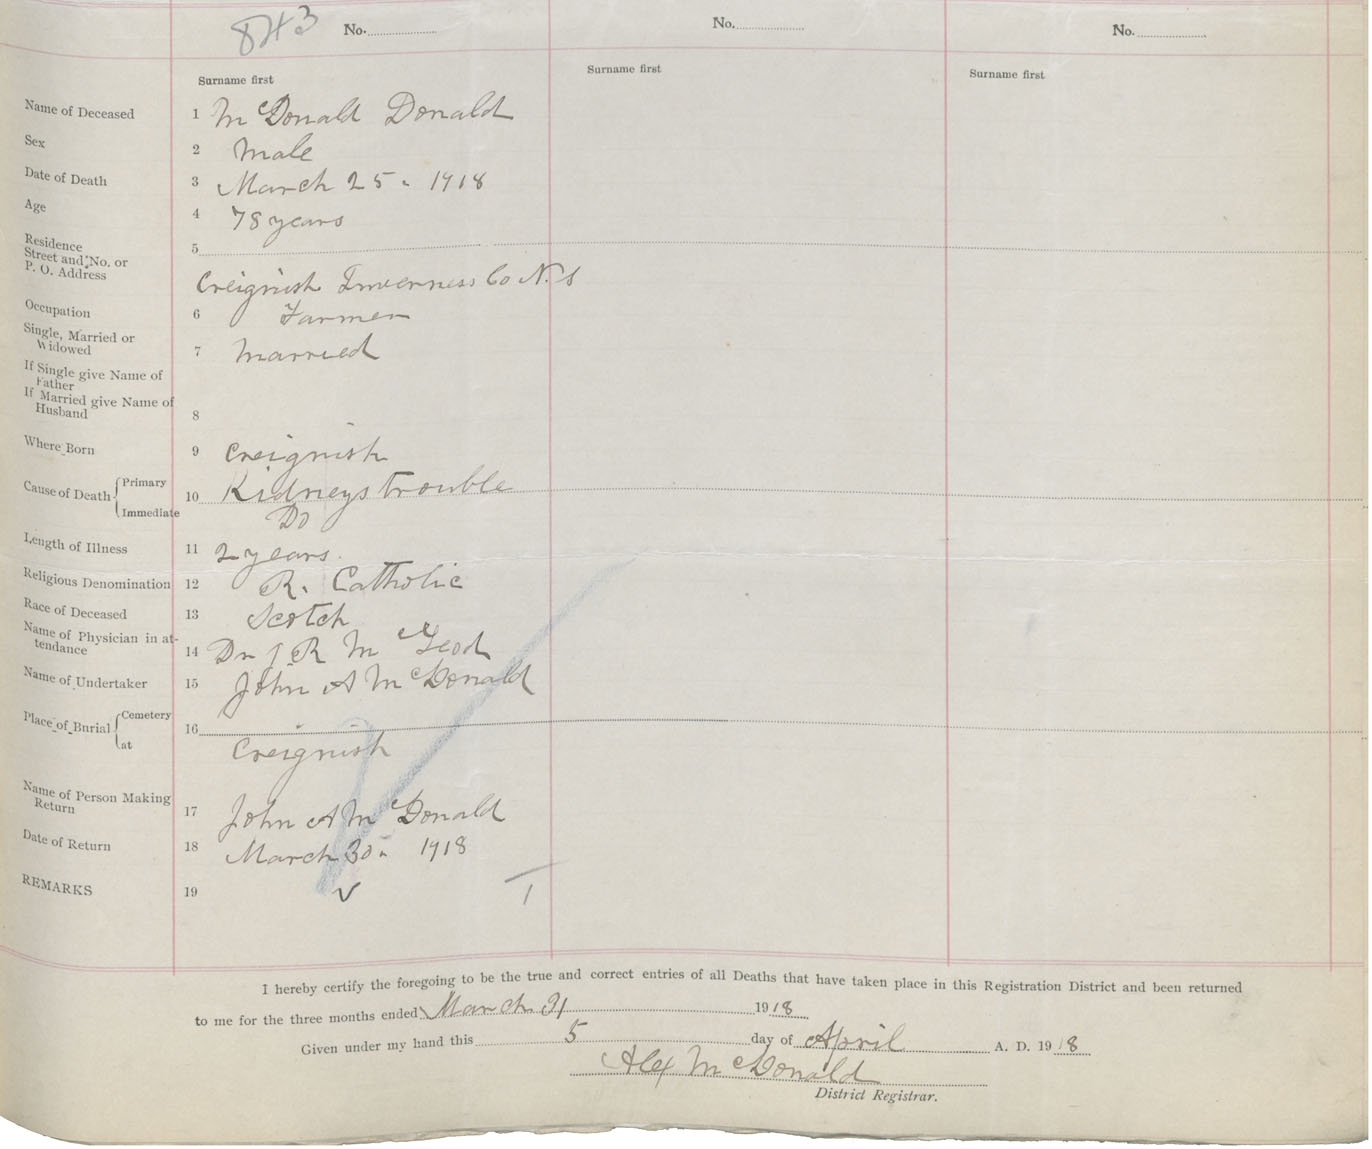 843 No. No. No.
Surname first Surname first Surname first
Name of Deceased 1 McDonald Donald
Sex 2 Male
Date of Death 3 March 25 - 1918
Age 4 78 years
Residence 5
Street and No. or
P. O. Address
Creignish Inverness Co N. S
Occupation 6 Farmer
Single, Married or
Widowed 7 Married
If Single give Name of
Father
If Married give Name of
Husband 8
Where Born 9 Creignish
Cause of Death { Primary 10 Kidneys trouble
Immediate Do
Length of Illness 11 2 years
Religious Denomination 12 R. Catholic
Race of Deceased 13 Scotch
Name of Physician in at-
tendance 14 Dr J. R McLeod
Name of Undertaker 15 John A McDonald
Place of Burial { Cemetery 16
at Creignish
Name of Person Making
Return 17 John A McDonald
Date of Return 18 March 30 - 1918
REMARKS 19
I hereby certify the foregoing to be the true and correct entries of all Deaths that have taken place in this Registration District and been returned
to me for the three months ended March 31 1918
Given under my hand this 5 day of April A. D. 1918
Alex McDonald
District Registrar.